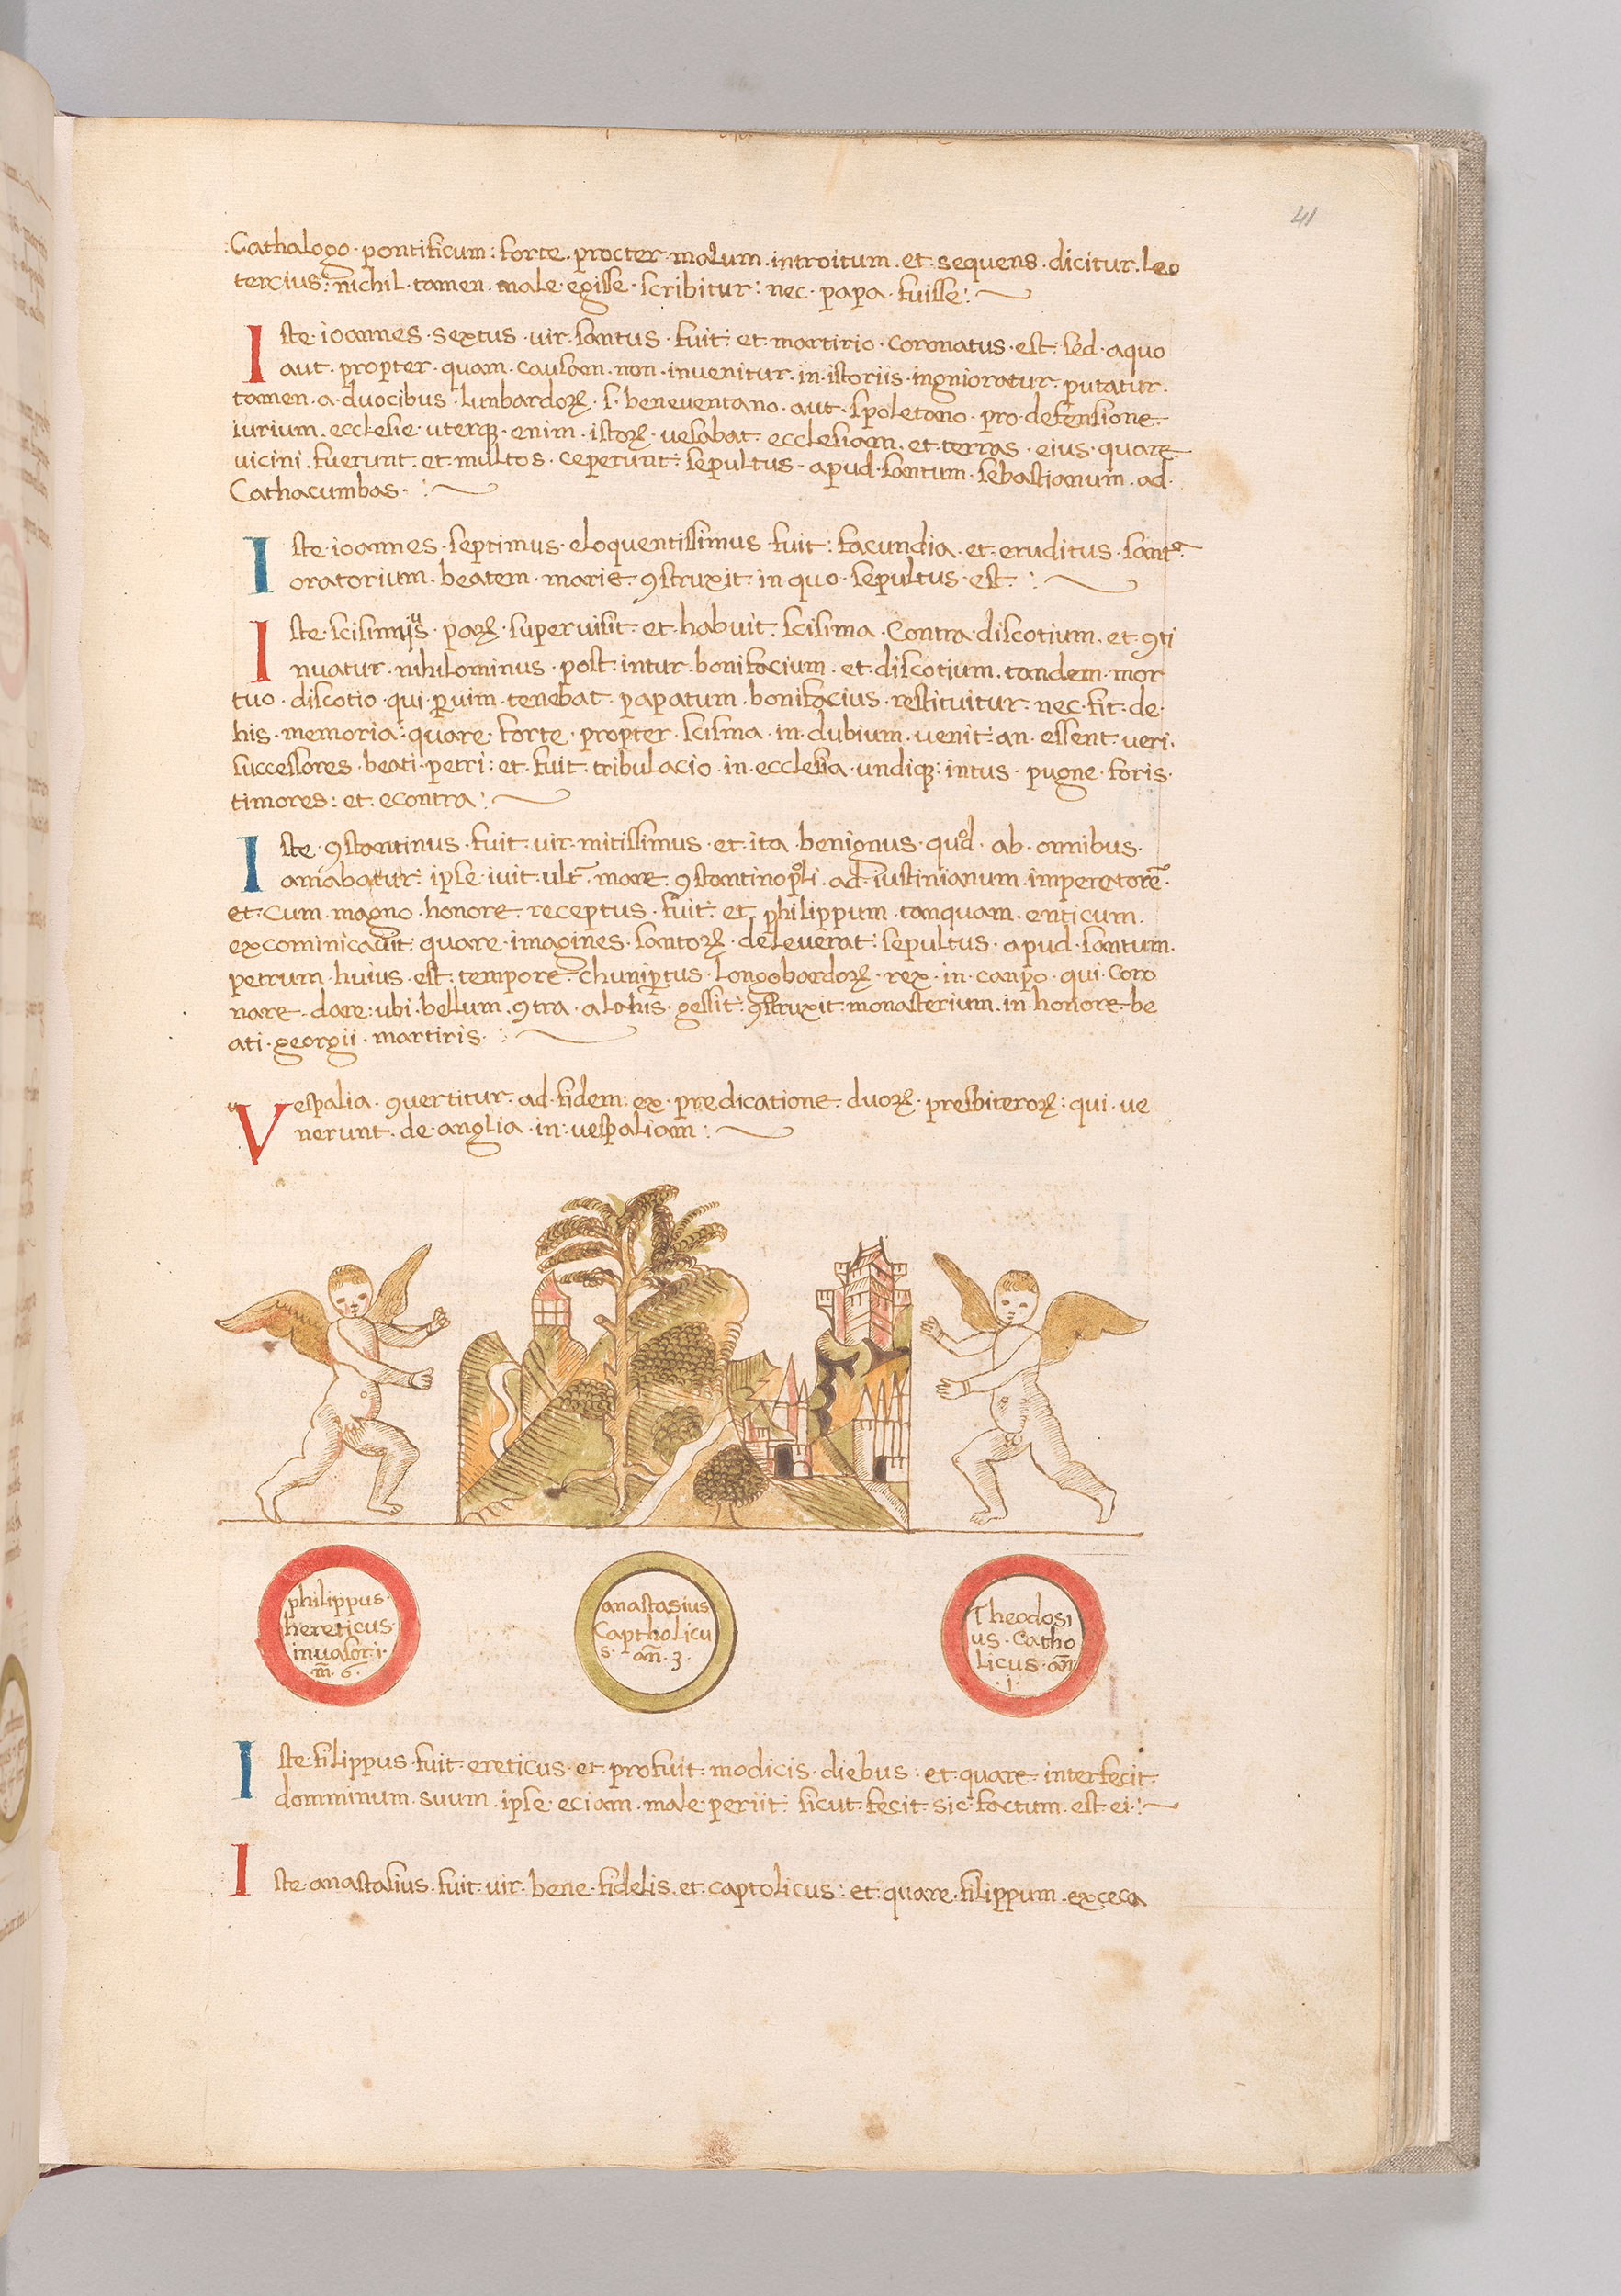 41
:Cathalogo · pontificum : forte · procter · malum · introitum · et · sequens · dicitur · leo
tercius : nichil · tamen · male · egisse · scribitur : nec · papa · fuisse :~
Iste · ioannes · sextus · vir · santus · fuit : et · martirio · coronatus · est : sed · aquo
aut · propter · quam · causam · non · invenitur · in · istoriis · ingnioratur · putatur ·
tamen · a · duocibus · lunbardoꝝ · s · beneventano · aut · spoletano · pro · defensione
iurium · ecclesie · uterqꝫ · enim · istoꝝ · vesabat · ecclesiam · et · terras · eius · quare
vicini · fuerunt · et · multos · ceperunt : sepultus · apud · santum · sebastianum · ad ·
Cathacumbas · :~
Iste · ioannes · septimus · eloquentissimus · fuit : facundia · et · eruditus · sant
oratorium · beatem · marie · ꝯstruxit · in quo · sepultus · est :~
Iste · scisimus · paꝝ · supervisit · et · habuit · scisima · Contra · discotium · et · ꝯti
nuatur · nihilominus · post · intur · bonifacium · et · discotium · tandem · mor
tuo · discotio · qui · ꝑ vim · tenebat · papatum · bonifacius · restituitur · nec · fit · de ·
his · memoria : quare · forte · propter · scisma · in · dubium · venit : an · essent · veri ·
successores · beati · petri : et · fuit · tribulacio · in · ecclesia · undiqꝫ : intus · pugne · foris ·
timores : et · econtra :~
Iste · ꝯstantinus · fuit · vir · mitissimus · et · ita · benignus · quod · ab · omnibus ·
amabatur : ipse · ivit · ult̄ · mare · ꝯstantinopoli · ad · iustinianum · imperetorē ·
et · cum · magno · honore · receptus · fuit : et · philippum · tanquam · enticum ·
excominicavit : quare · imagines · santoꝝ · deleverat : sepultus · apud · santum ·
petrum · huius · est · tempore · chuniꝑtus · longobardoꝝ · rex · in · canpo · qui · coro
nare · dare : ubi · bellum · ꝯtra · alahis · gessit : ꝯstruxit · monasterium · in · honore · be
ati · georgii · martiris · :~
Vespalia · ꝯvertitur · ad · fidem : ex · predicatione · duoꝝ · presbiteroꝝ : qui · ve
nerunt · de · anglia · in · vespaliam :~
philippus ·
hereticus
invasor · i ·
m̄ · 6 ·
anastasius
Captholicu
s · an̄ · 3 ·
Theodosi
us · Catho
licus · an̄
· i ·
Iste · filippus · fuit · ereticus · et · profuit · modicis · diebus : et · quare · interfecit ·
domminum · suum · ipse · eciam · male · periit : sicut · fecit · sic · factum · est · ei :~
Iste · anastasius · fuit · vir · bene · fidelis · et · captolicus : et · quare · filippum · exceca